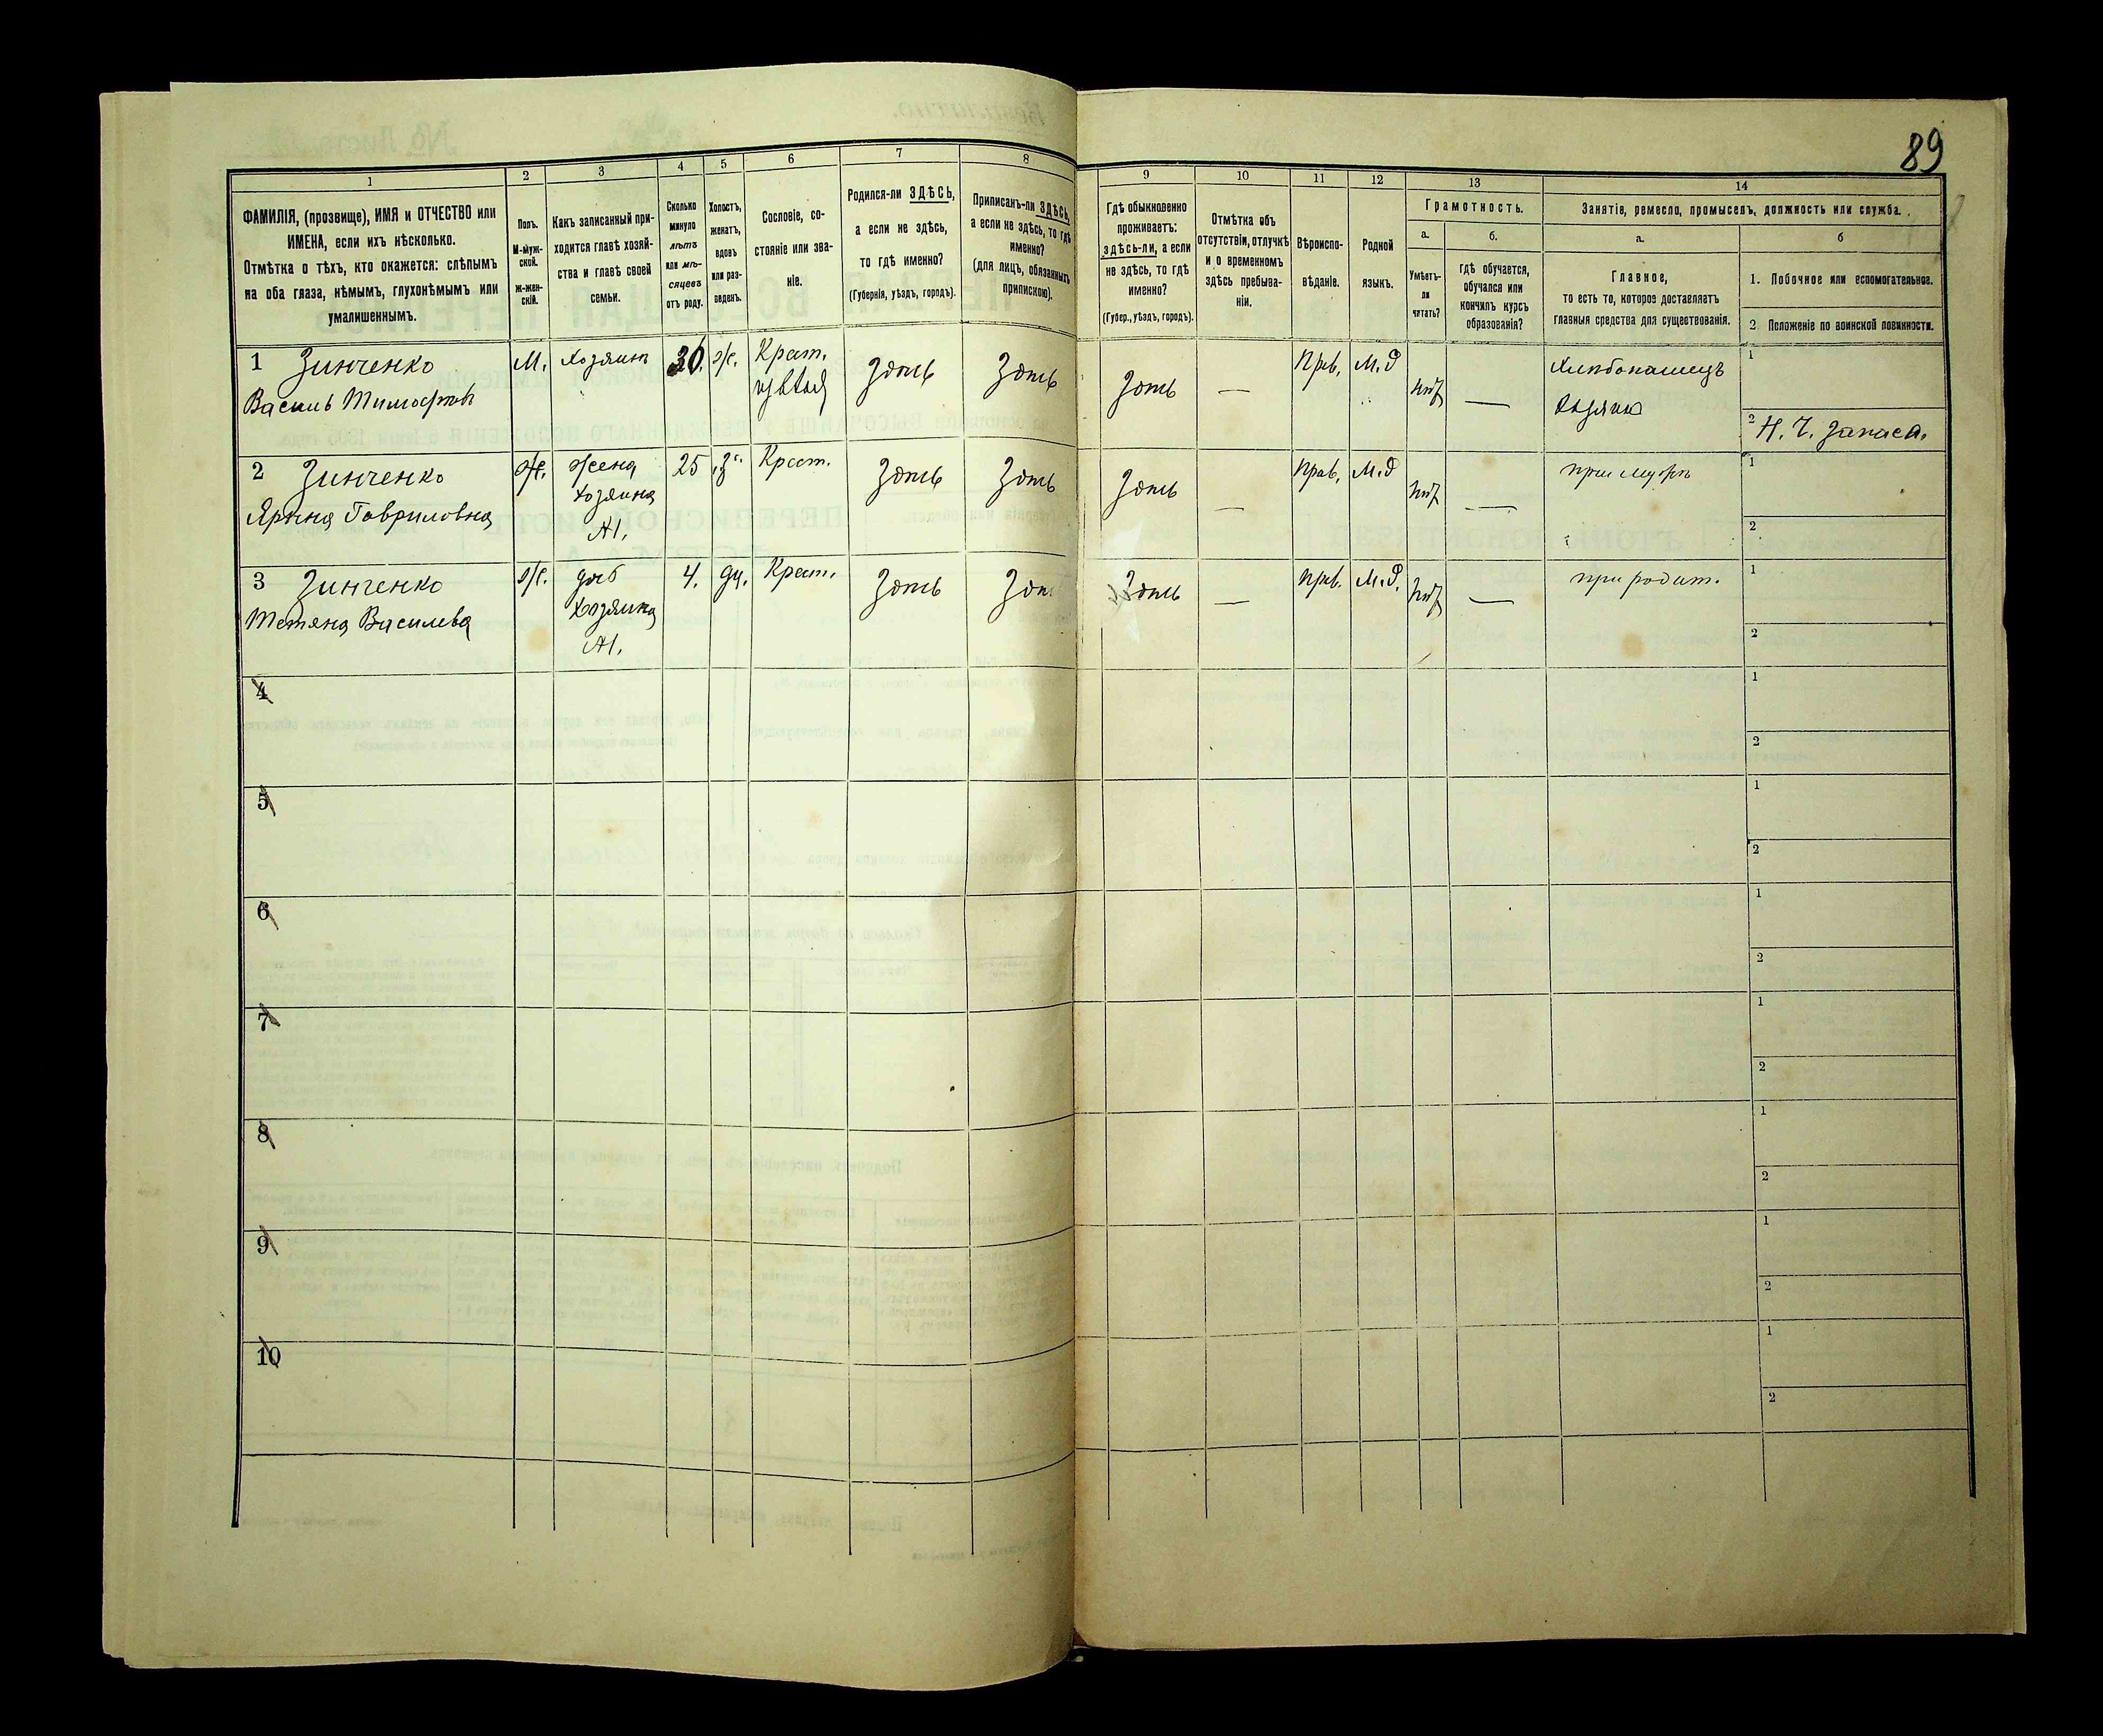 89
1
2
3
4
5
6
7
8
9
10
11
12
13
14
ФАМИЛІЯ, (прозвище), ИМЯ и ОТЧЕСТВО или
ИМЕНА, если ихъ нѣсколько.
Отмѣтка о тѣхъ, кто окажется: слѣпымъ
на оба глаза, нѣмымъ, глухонѣмымъ или
умалишеннымъ.
Полъ.
М-муж-
ской.
ж-жен-
скій.
Какъ записанный при-
ходится главѣ хозяй-
ства и главѣ своей
семьи.
Сколько
минуло
лѣтъ
или мѣ-
сяцевъ
отъ роду.
Холостъ,
женатъ,
вдовъ
или раз-
веденъ.
Сословіе, со-
стояніе или зва-
ніе.
Родился-ли ЗДѢСЬ,
а если не здѣсь,
то гдѣ именно?
(Губернія, уѣздъ, городъ).
Приписанъ-ли ЗДѢСЬ,
а если не здѣсь, то гдѣ
именно?
(для лицъ, обязанныхъ
припискою).
Гдѣ обыкновенно
проживаетъ:
здѣсь-ли, а если
не здѣсь, то гдѣ
именно?
(Губер., уѣздъ, городъ).
Отмѣтка объ
отсутствіи, отлучкѣ
и о временномъ
здѣсь пребыва-
ніи.
Вѣроиспо-
вѣданіе.
Родной
языкъ.
Грамотность.
а.
б.
Умѣетъ-
ли
читать?
гдѣ обучается,
обучался или
кончилъ курсъ
образованія?
Занятіе, ремесло, промыселъ, должность или служба.
а.
б
Главное,
то есть то, которое доставляетъ
главныя средства для существованія.
1. Побочное или вспомогательное.
2 Положеніе по воинской повинности.
1 Зинченко М. Хозяинъ 30. ж. Крест. Здѣсь Здѣсь Здѣсь — Прав. М.д нѣт — Хлебопашецъ 1
Василь Тимофѣевъ хозяинъ 2 Н. Ч. запаса.
2 Зинченко ж. Жена 25 з. Крест. Здѣсь Здѣсь Здѣсь — Прав. М.д нѣт — при мужѣ 1
Ярына Гавриловна хозяина
№1. 2
3 Зинченко ж. доч 4. дч. Крест. Здѣсь Здѣсь — прав. М.д. нѣт — при родит. 1
Тетяна Василева Хозяина
№1. 2
4 1
2
5 1
2
6 1
2
7 1
2
8 1
2
9 1
2
10 1
2